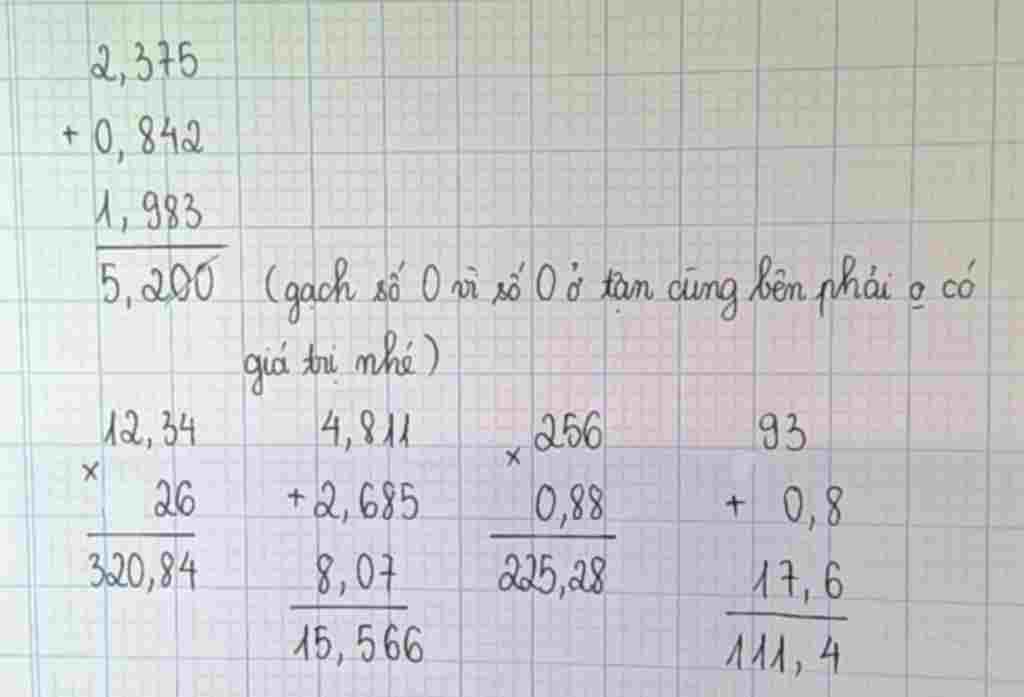 2,375
+ 0,842
1,983
5,200 (gạch số 0 vì số 0 ở tận cùng bên phải o có
giá trị nhé)
12,34 4,811 × 256 93
× 26 + 2,685 0,88 + 0,8
320,84 8,07 225,28 17,6
15,566 111,4